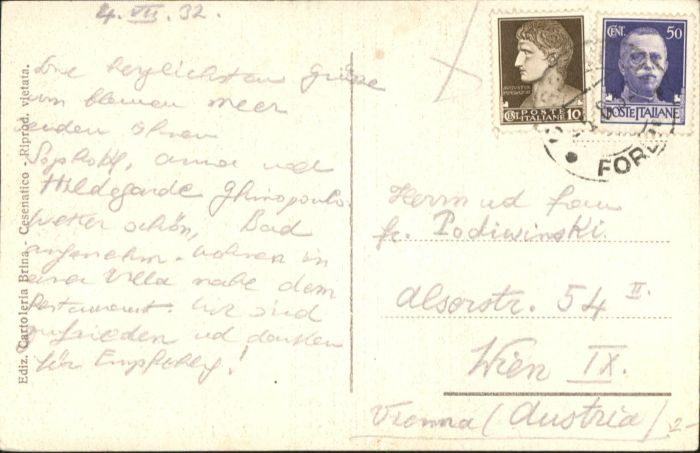 4. VII. 32.
Die herzlichsten Grüße
vom blauen Meer
senden Ihnen
Sophokl, Anna und
Hildegarde Ghinopoulo.
Wetter schön, Bad
angenehm. Wohnen in
einer Villa nahe dem
Restaurant. Wir sind
zufrieden und danken
für Empfehlg!
Ediz. Cartoleria Brina, - Cesenatico - Riprod. vietata.
AVGVSTVS
CENT. POSTE ITALIANE 10
CENT. 50
POSTE ITALIANE
FORL
Herrn und Frau
Podiwinski
Alserstr. 54 II.
Wien IX.
Vienna (Austria)
2-